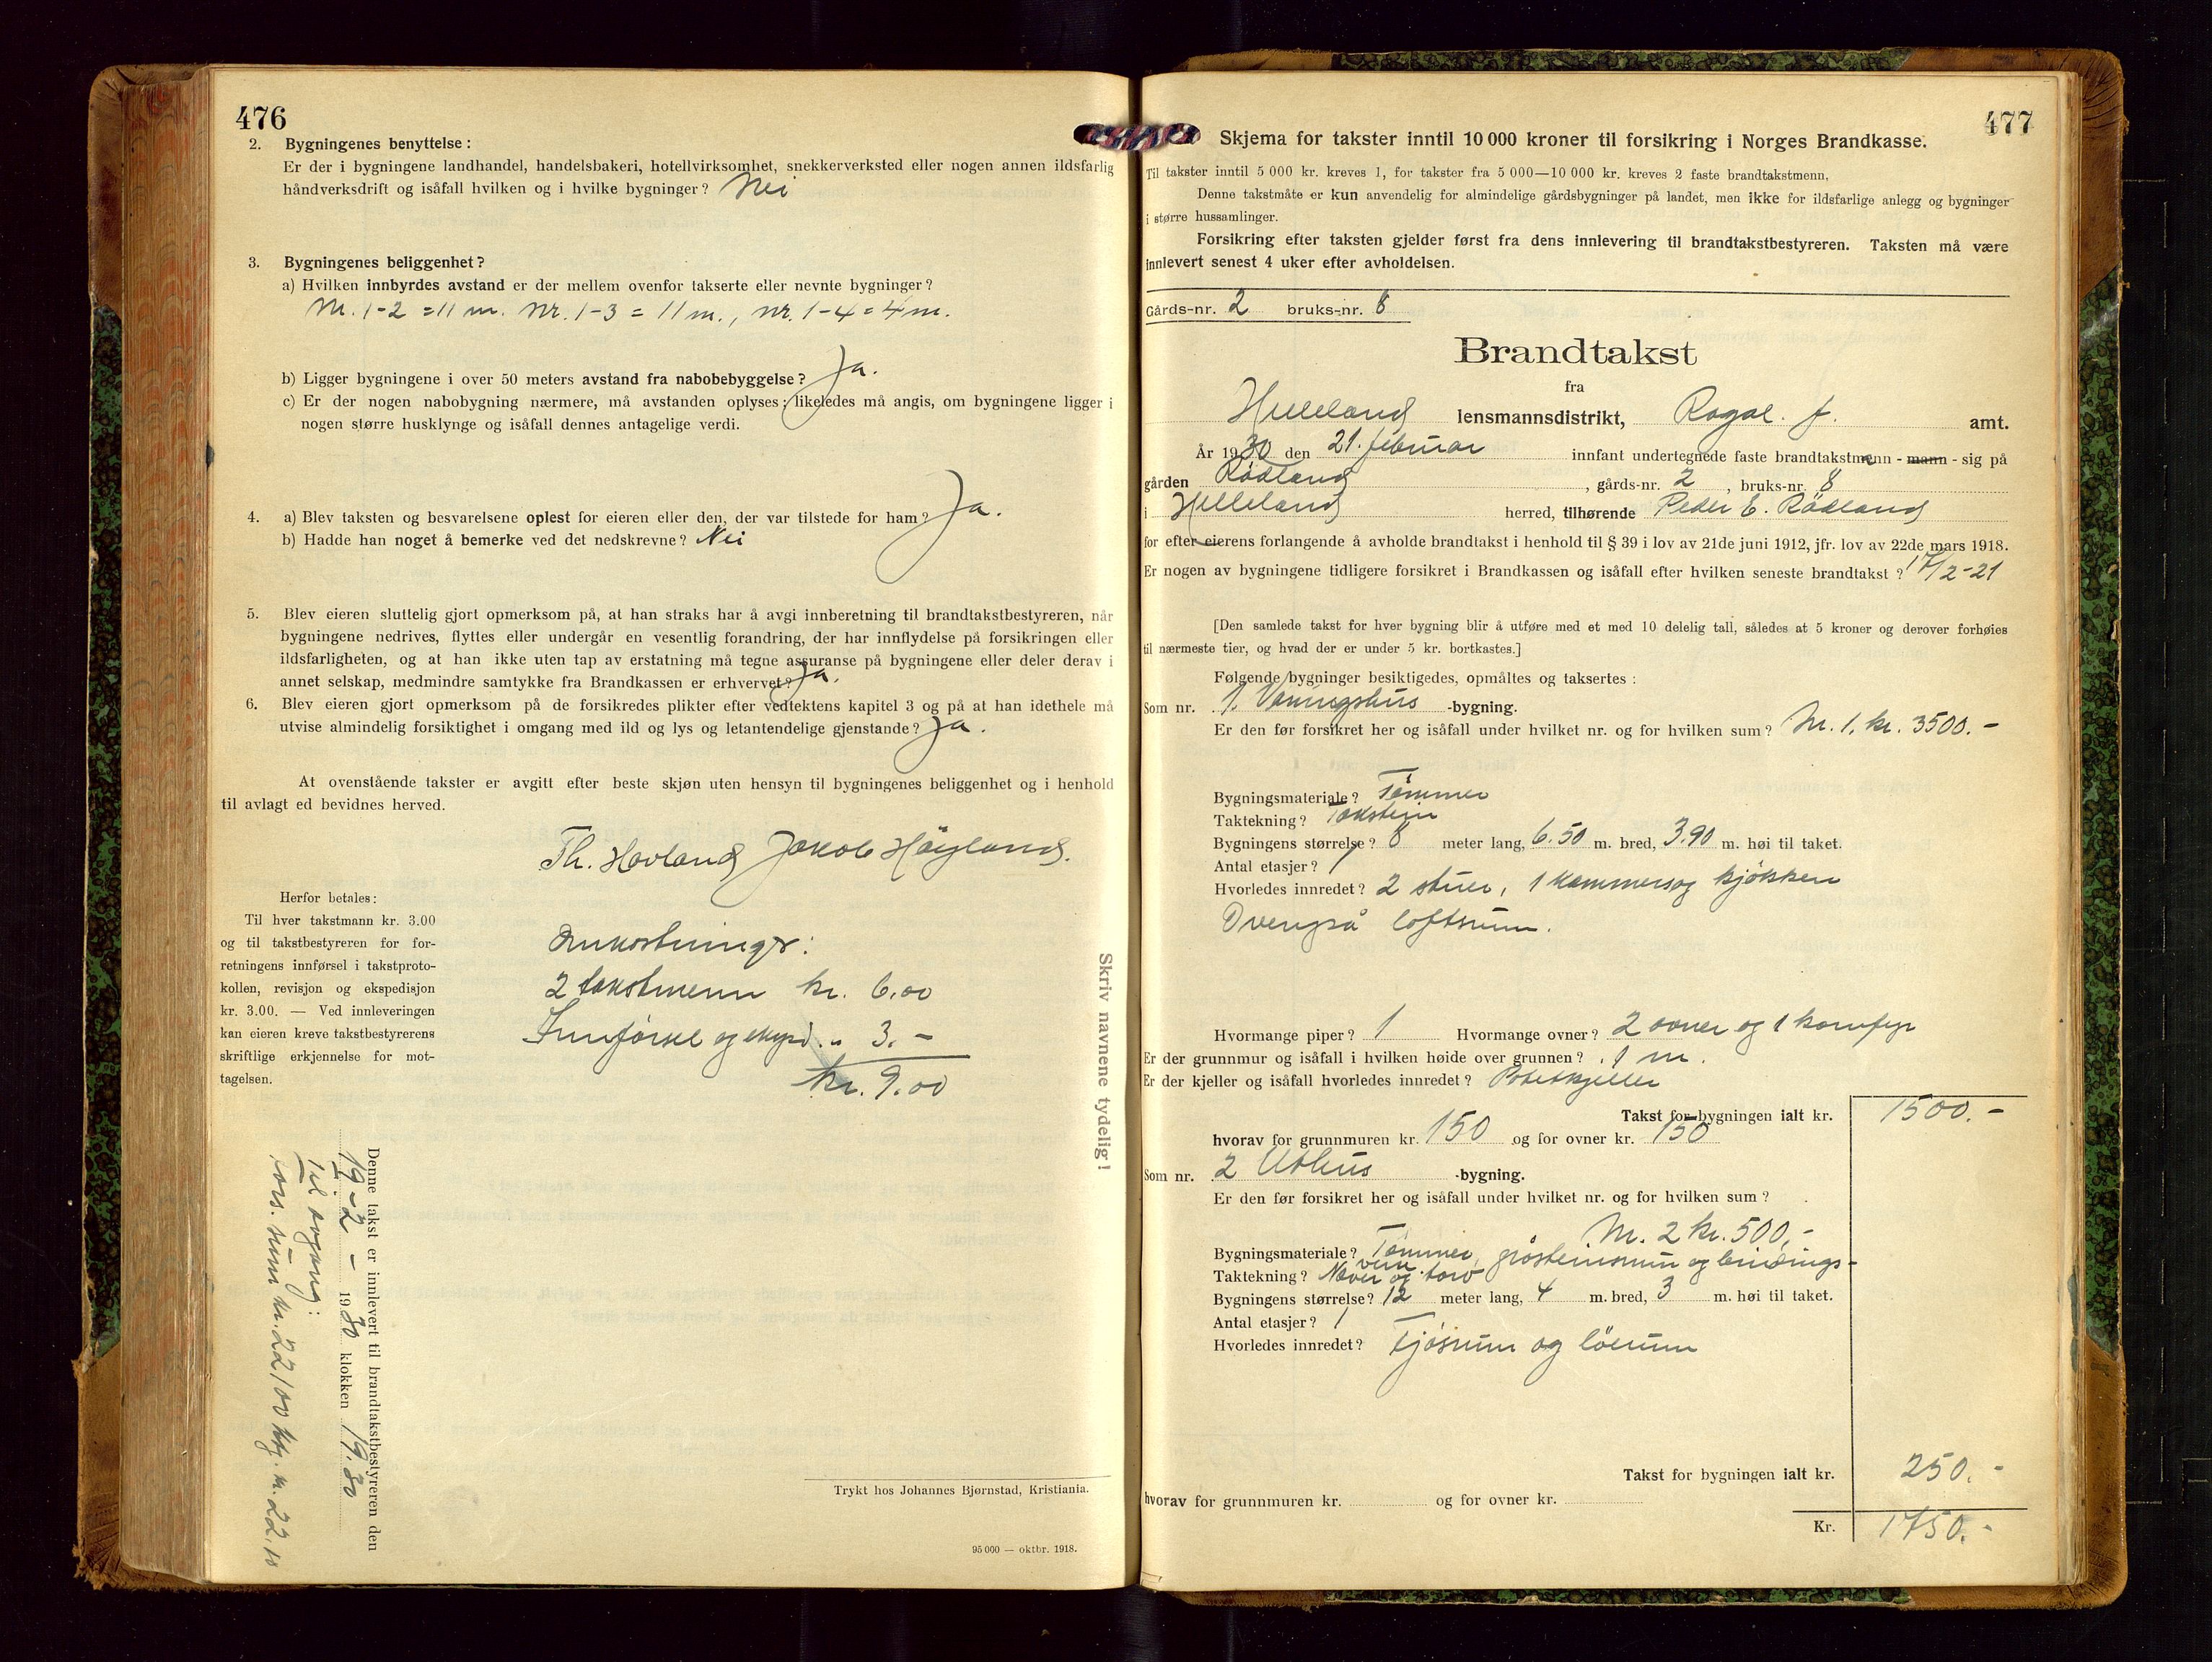 476
2. Bygningenes benyttelse:
Er der i bygningene landhandel, handelsbakeri, hotellvirksomhet, snekkerverksted eller nogen annen ildsfarlig
håndverksdrift og isåfall hvilken og i hvilke bygninger? Nei
3. Bygningenes beliggenhet?
a) Hvilken innbyrdes avstand er der mellem ovenfor takserte eller nevnte bygninger?
Nr. 1-2 = 11 m. Nr. 1-3 = 11 m., nr. 1-4 = 4 m.
b) Ligger bygningene i over 50 meters avstand fra nabobebyggelse? Ja.
c) Er der nogen nabobygning nærmere, må avstanden oplyses; likeledes må angis, om bygningene ligger i
nogen større husklynge og isåfall dennes antagelige verdi.
4. a) Blev taksten og besvarelsene oplest for eieren eller den, der var tilstede for ham? Ja.
b) Hadde han noget å bemerke ved det nedskrevne? Nei
5. Blev eieren sluttelig gjort opmerksom på, at han straks har å avgi innberetning til brandtakstbestyreren, når
bygningene nedrives, flyttes eller undergår en vesentlig forandring, der har innflydelse på forsikringen eller
ildsfarligheten, og at han ikke uten tap av erstatning må tegne assuranse på bygningene eller deler derav i
annet selskap, medmindre samtykke fra Brandkassen er erhvervet? Ja.
6. Blev eieren gjort opmerksom på de forsikredes plikter efter vedtektens kapitel 3 og på at han idethele må
utvise almindelig forsiktighet i omgang med ild og lys og letantendelige gjenstande? Ja.
At ovenstående takster er avgitt efter beste skjøn uten hensyn til bygningenes beliggenhet og i henhold
til avlagt ed bevidnes herved.
Th. Hovland Jakob Høyland.
Herfor betales:
Til hver takstmann kr. 3.00
og til takstbestyreren for for-
retningens innførsel i takstproto-
kollen, revisjon og ekspedisjon
kr. 3.00. — Ved innleveringen
kan eieren kreve takstbestyrerens
skriftlige erkjennelse for mot-
tagelsen.
Omkostninger:
2 takstmenn kr. 6,00
Innførsel og eksped. " 3.-
kr. 9.00
Skriv navnene tydelig!
Denne takst er innlevert til brandtakstbestyreren den
19-2 - 1930 klokken 19.30
Til avgang:
fors. sum kr. 22/00
Trykt hos Johannes Bjørnstad, Kristiania.
95 000 — oktbr. 1918.
477
Skjema for takster inntil 10 000 kroner til forsikring i Norges Brandkasse.
Til takster inntil 5 000 kr. kreves 1, for takster fra 5 000—10 000 kr. kreves 2 faste brandtakstmenn.
Denne takstmåte er kun anvendelig for almindelige gårdsbygninger på landet, men ikke for ildsfarlige anlegg og bygninger
i større hussamlinger.
Forsikring efter taksten gjelder først fra dens innlevering til brandtakstbestyreren. Taksten må være
innlevert senest 4 uker efter avholdelsen.
Gårds-nr. 2 bruks-nr. 8
Brandtakst
fra
Helleland lensmannsdistrikt, Rogal. f. amt.
År 1930 den 21. februar innfant undertegnede faste brandtakstmenn - mann - sig på
gården Rødland, gårds-nr. 2, bruks-nr. 8
i Helleland herred, tilhørende Peder E. Rødland
for efter eierens forlangende å avholde brandtakst i henhold til § 39 i lov av 21de juni 1912, jfr. lov av 22de mars 1918.
Er nogen av bygningene tidligere forsikret i Brandkassen og isåfall efter hvilken seneste brandtakst? 17/2-21
[Den samlede takst for hver bygning blir å utføre med et med 10 delelig tall, således at 5 kroner og derover forhøies
til nærmeste tier, og hvad der er under 5 kr. bortkastes.]
Følgende bygninger besiktigedes, opmåltes og taksertes:
Som nr. 1. Vaningshus -bygning.
Er den før forsikret her og isåfall under hvilket nr. og for hvilken sum? Nr. 1. kr. 3500.-
Bygningsmateriale? Tømmer
Taktekning? Takstein
Bygningens størrelse? 8 meter lang, 6.50 m. bred, 3.90 m. høi til taket.
Antal etasjer? 1
Hvorledes innredet? 2 stuer, 1 kammers og kjøkken
Ovenpå loftsrum.
Hvormange piper? 1 Hvormange ovner? 2 ovner og 1 komfyr
Er der grunnmur og isåfall i hvilken høide over grunnen? 1 m.
Er der kjeller og isåfall hvorledes innredet? Potetkjeller
Takst for bygningen ialt kr. 1500.-
hvorav for grunnmuren kr. 150 og for ovner kr. 150
Som nr. 2 Uthus -bygning.
Er den før forsikret her og isåfall under hvilket nr. og for hvilken sum?
Nr. 2 kr. 500,-
Bygningsmateriale? Tømmer, gråsteinsmur og bindings-
verk
Taktekning? Never og torv
Bygningens størrelse? 12 meter lang, 4 m. bred, 3 m. høi til taket.
Antal etasjer? 1
Hvorledes innredet? Fjøsrum og løerum
Takst for bygningen ialt kr. 250.-
hvorav for grunnmuren kr. og for ovner kr.
Kr. 1750.-